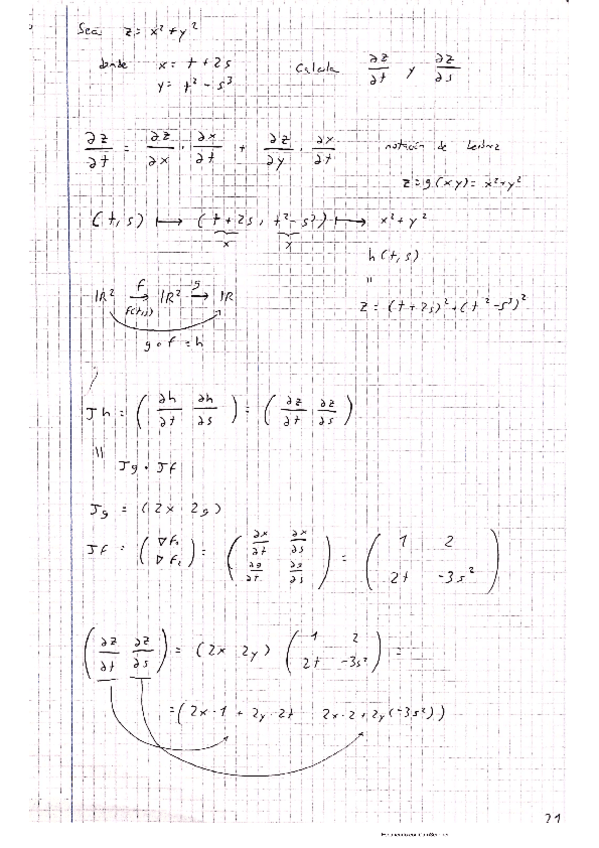 Sea z = x² + y²
donde x = t + 2s Calcula ∂z/∂t y ∂z/∂s
y = t² - s³
∂z/∂t = ∂z/∂x · ∂x/∂t + ∂z/∂y · ∂x/∂t notación de Leibniz
z = g(x y) = x² + y²
(t, s) ⟼ (t + 2s, t² - s³) ⟼ x² + y²
x y
h(t, s)
"
z = (t + 2s)² + (t² - s³)²
IR² →f IR² →g IR
f(t,s)
g ∘ f = h
Jh = (∂h/∂t ∂h/∂s) = (∂z/∂t ∂z/∂s)
"
Jg · Jf
Jg = (2x 2y)
Jf = (∇f₁ ∇f₂) = (∂x/∂t ∂x/∂s ∂y/∂t ∂y/∂s) = (1 2 2t -3s²)
(∂z/∂t ∂z/∂s) = (2x 2y) (1 2 2t -3s²) =
= (2x · 1 + 2y · 2t 2x · 2 + 2y (-3s²))
21